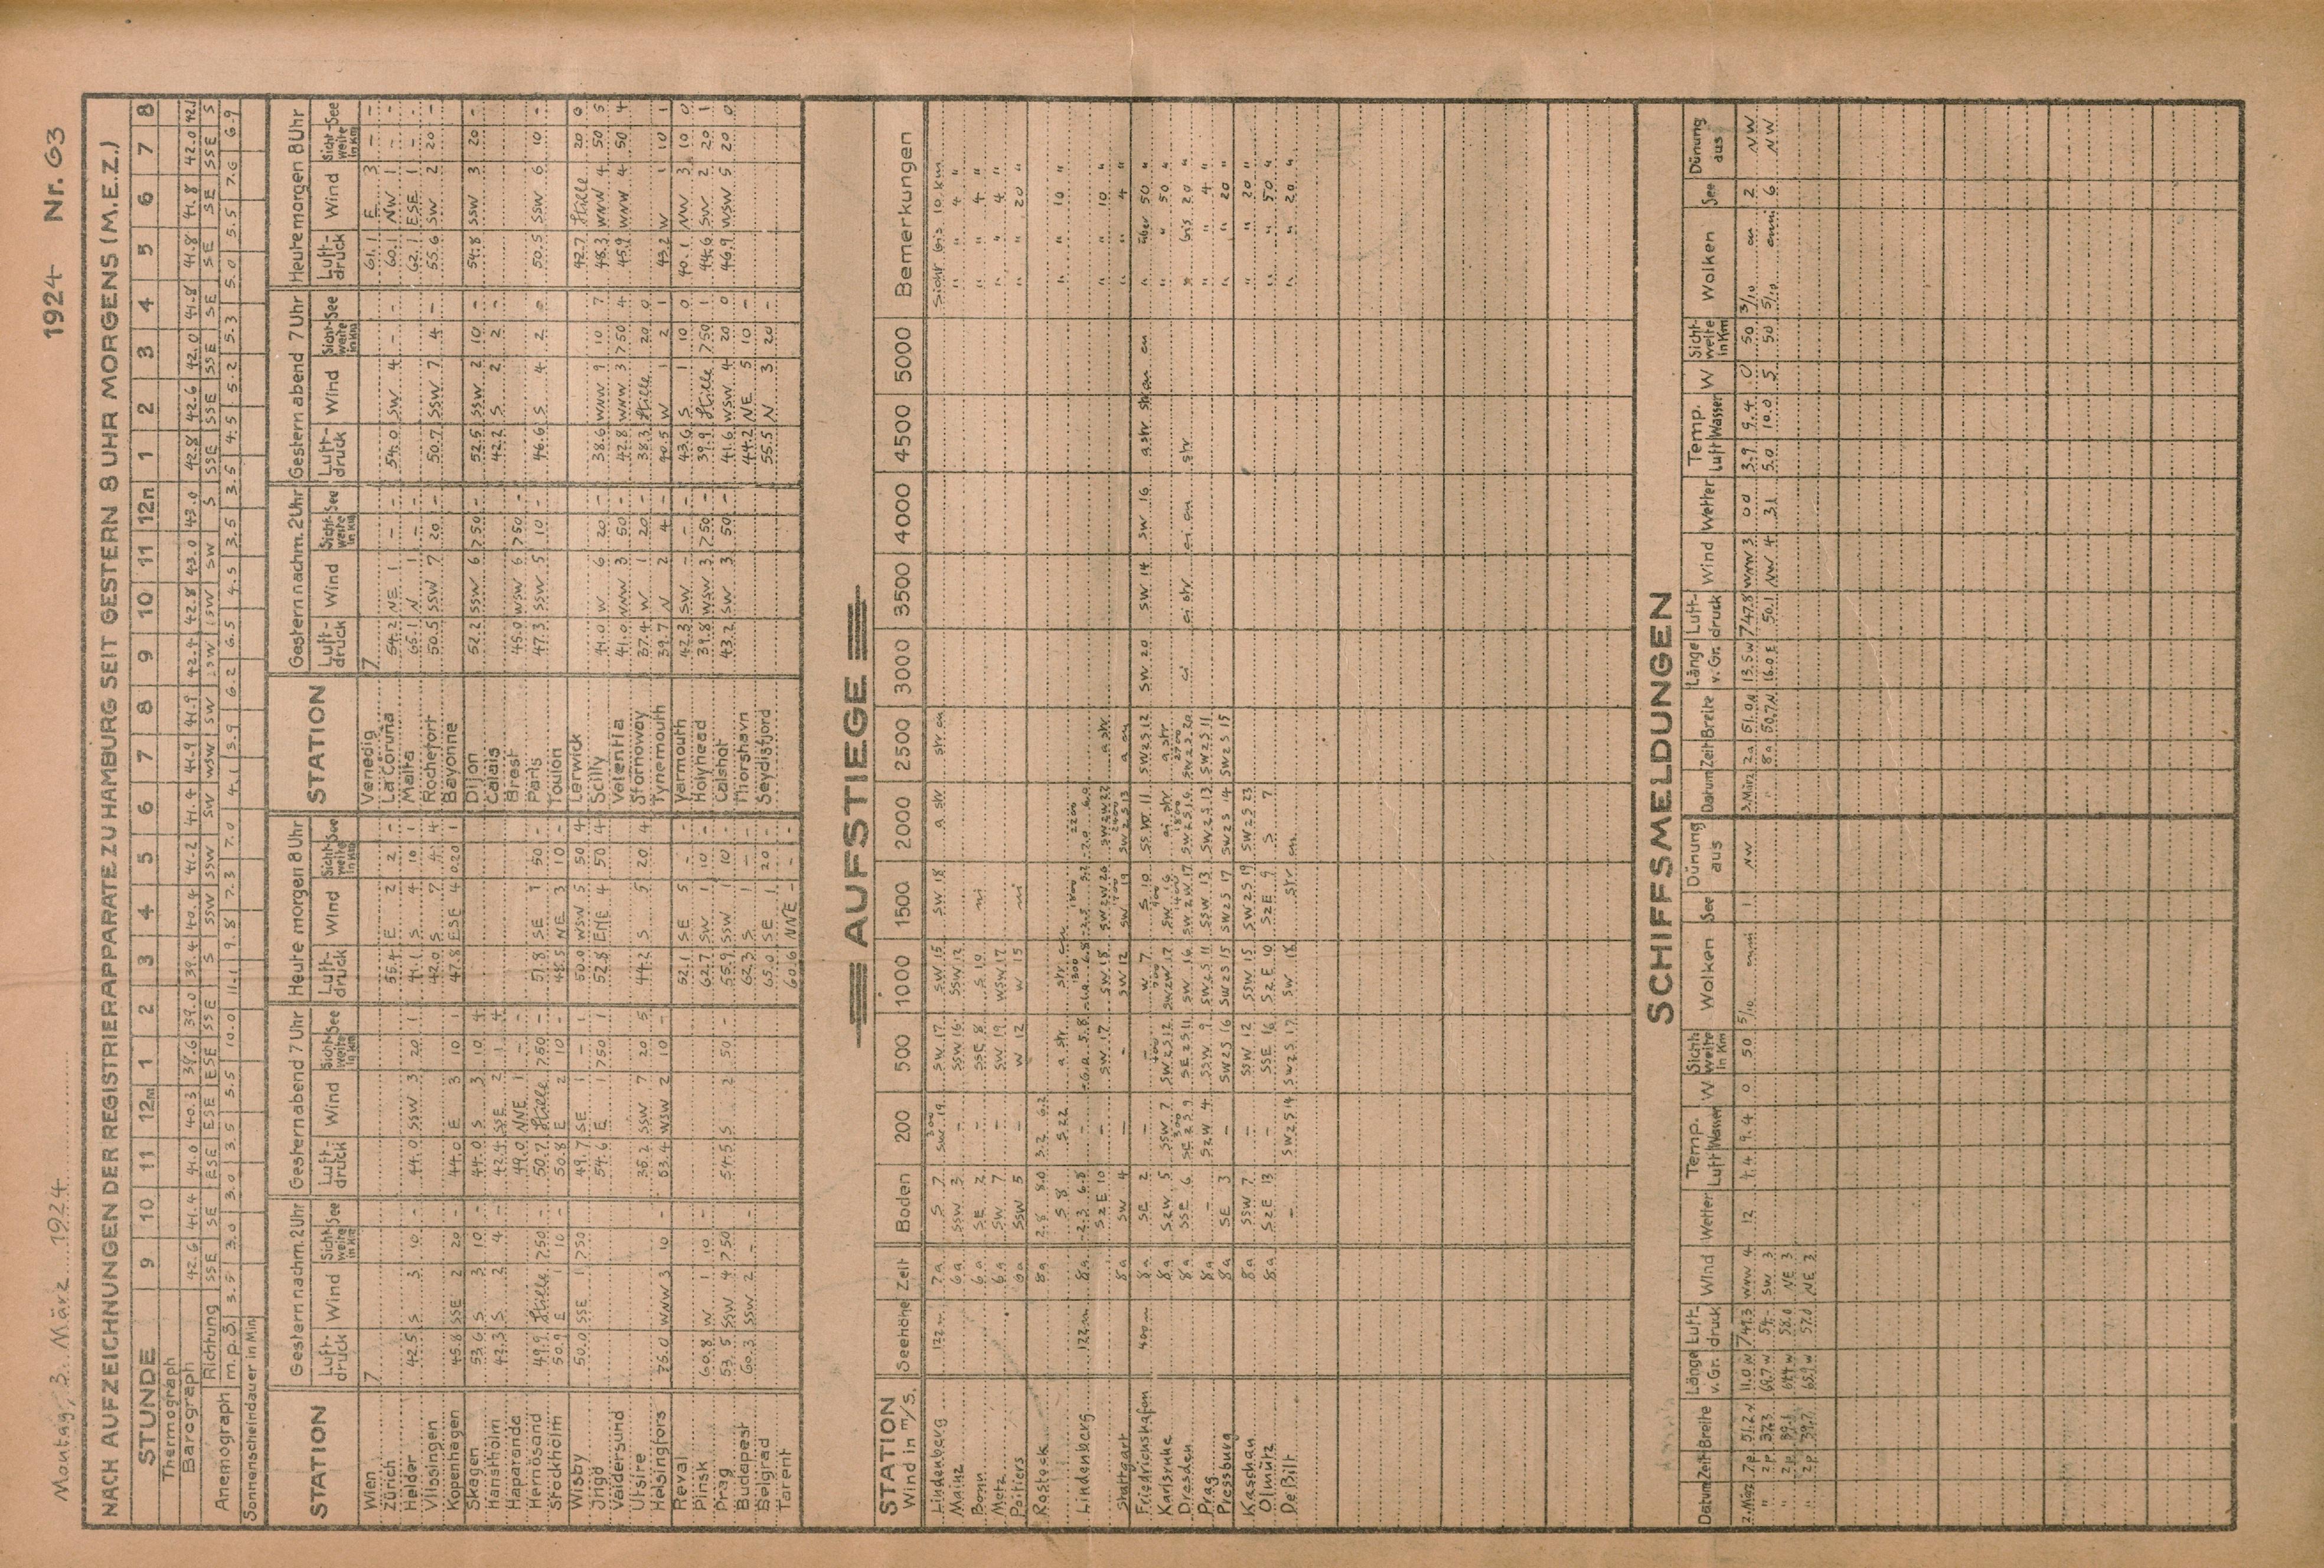 Montag, 3. März 1924
1924 Nr. 63
NACH AUFZEICHNUNGEN DER REGISTRIERAPPARATE ZU HAMBURG SEIT GESTERN 8 UHR MORGENS (M.E.Z.)
STUNDE 9 10 11 12m 1 2 3 4 5 6 7 8 9 10 11 12n 1 2 3 4 5 6 7 8
Thermograph
Barograph 42.6 41.4 41.0 40.3 39.6 39.0 39.4 40.4 41.2 41.4 41.9 41.9 42.4 42.8 43.0 43.0 42.8 42.6 42.0 41.8 41.8 41.8 42.0 42.1
Anemograph Richtung SSE SE ESE ESE ESE SSE S SSW SSW SW WSW SW SW S SSE SSE SSE SE SE SE SSE S
m.p.s. 3.5 3.0 3.0 3.5 5.5 10.0 11.1 9.8 7.3 7.0 4.1 3.9 6.2 6.5 4.5 3.5 3.5 4.5 5.2 5.3 5.0 5.5 7.6 6.9
Sonnenscheindauer in Min
STATION Gestern nachm. 2 Uhr Gestern abend 7 Uhr Heute morgen 8 Uhr
Luft-druck Wind Sicht-weite in Km See Luft-druck Wind Sicht-weite in Km See Luft-druck Wind Sicht-weite in Km See
Wien 7
Zürich 55.4 E 2 2 -
Helder 42.5 S 3 10 - 44.0 SSW 3 20 1 41.1 S 4 10 1
Vlissingen 42.0 S 7 4 4
Kopenhagen 45.8 SSE 2 20 - 44.0 E 3 10 1 47.8 ESE 4 0.20 1
Skagen 53.6 S 3 10 - 44.0 S 3 10 4
Hanstholm 42.3 S 2 4 - 42.4 SE 2 1 4
Haparanda 49.0 NNE 1 - -
Hernösand 49.9 Stille 750 - 50.7 Stille 750 - 51.8 SE 1 50 -
Stockholm 50.9 E 1 10 - 50.8 E 2 10 - 48.5 NE 3 10 -
Wisby 50.0 SSE 1 750 - 49.7 SE 1 - 1 50.0 WSW 5 50 4
Jngö 54.6 E 1 750 1 52.8 ENE 4 50 4
Vaidersund
Utsire 36.2 SSW 7 20 5 44.2 S 5 20 4
Helsingfors WNW 3 10 - 63.4 WSW 2 10 -
Reval 52.1 SE 5 - -
Pinsk 60.8 W 1 10 62.7 SW 1 10 -
Prag 53.5 SSW 4 750 54.5 S 2 50 - 55.9 SSW 1 10 -
Budapest 60.3 SSW 2 - 62.3 S 1 - -
Belgrad 65.0 SE 1 20 -
Tarent 60.6 NNE - - -
STATION Gestern nachm. 2 Uhr Gestern abend 7 Uhr Heute morgen 8 Uhr
Luft-druck Wind Sicht-weite in Km See Luft-druck Wind Sicht-weite in Km See Luft-druck Wind Sicht-weite in Km See
Venedig 7 61.1 E 3 - -
La Coruna 54.2 NE 1 - - 54.0 SW 4 - - 60.1 NW 1 - -
Malta 65.1 N 1 - - 62.1 ESE 1 - -
Rochefort 50.5 SSW 7 20 - 50.7 SSW 7 4 - 55.6 SW 2 20 -
Bayonne
Dijon 52.2 SSW 6 750 - 52.6 SSW 2 10 - 54.8 SSW 3 20 -
Calais 42.2 S 2 2 -
Brest 45.0 WSW 6 750 -
Paris 47.3 SSW 5 10 - 46.6 S 4 2 0 50.5 SSW 6 10 -
Toulon
Lerwick 42.7 Stille 20 0
Scilly 41.0 W 6 20 - 38.6 WNW 9 10 7 48.3 WNW 4 50 5
Valentia 41.0 WNW 3 50 - 42.8 WNW 3 750 4 45.9 WNW 4 50 4
Stornoway 37.4 W 1 20 - 38.3 Stille 20 0
Tynemouth 39.7 N 2 4 - 40.5 W 1 2 1 43.2 W 1 10 1
Yarmouth 42.3 SW - - - 43.6 S 1 10 0 40.1 NW 3 10 0
Holyhead 39.8 WSW 3 750 - 39.9 Stille 750 1 44.6 SW 2 20 1
Calshot 43.2 SW 3 50 - 41.6 WSW 4 20 0 46.9 WSW 5 20 0
Thorshavn 44.2 NE 5 10 -
Seydisfjord 55.5 N 3 20 -
AUFSTIEGE
STATION Wind in m/s. Seehöhe Zeit Boden 200 500 1000 1500 2000 2500 3000 3500 4000 4500 5000 Bemerkungen
Lindenberg 122 m 7a S 7 300 SW 19 SW 17 SW 15 SW 18 a str str cu Sicht bis 10 km
Mainz 6a SSW 3 - SSW 16 SSW 12 " " 4 "
Bonn 6a SE 2 - SSE 8 S 10 ni " " 4 "
Metz 6a SW 7 - SW 19 WSW 17 " " 4 "
Poitiers 6a SSW 5 - W 12 W 15 ni " " 20 "
Rostock 8a 2.8 8.0 3.2 6.2
S 8 S 22 a str str cu " " 10 "
Lindenberg 122 m 8a
SzE 10 - SW 17 SW 18 a str " " 10 "
Stuttgart 8a SW 4 - - SW 12 SW 19 SWzS 13 a cu " " 4 "
Friedrichshafen 400 m 8a SE 2 - - W 7 S 10 SSW 11 SWzS 12 SW 20 SW 14 SW 16 a str str cu cu " über 50 "
Karlsruhe 8a SzW 5 SSW 7 SWzS 12 SWzW 17 SW 16 ci str a str " " 50 "
Dresden 8a SSE 6 SE z S 9 SE z S 11 SW 16 SWzW 17 SWzS 16 SWzS 20 ci ci str ci cu str " bis 20 "
Prag 8a - SzW 4 SSW 9 SWzS 11 SSW 13 SWzS 13 SWzS 11 " " 4 "
Pressburg 8a SE 3 - SWzS 16 SWzS 15 SWzS 17 SWzS 14 SWzS 15 " " 20 "
Kaschau 8a SSW 7 - SSW 12 SSW 15 SWzS 19 SWzS 23 " " 20 "
Olmütz 8a SzE 13 - SSE 16 SzE 10 SzE 9 S 7 " " 50 "
De Bilt - SWzS 14 SWzS 17 SW 18 str cu " " 20 "
SCHIFFSMELDUNGEN
Datum Zeit Breite Länge v. Gr. Luft-druck Wind Wetter Temp. Luft Wasser W Sicht-weite in Km Wolken See Dünung aus
2. März 7p. 51.2 N 11.0 W 749.3 WNW 4 12 9.4 0 50 5/10 cuni 1 NW
" 2p. 37.3 SW 3
" 2p. 58.0 NE 3
" 2p. 57.0 NE 3
Datum Zeit Breite Länge v. Gr. Luft-druck Wind Wetter Temp. Luft Wasser W Sicht-weite in Km Wolken See Dünung aus
3. März 2a 51.0 N 13.5 W 747.8 WNW 3 00 3.9 9.4 0 50 3/10 cu 2 NW
8a 50.7 N 16.0 E 50.1 NW 4 31 5.0 10.0 5 50 5/10 cuni 6 NW